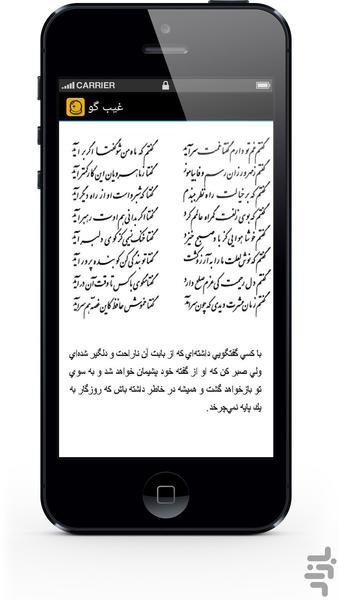 CARRIER
غیب گو
گفتم غم تو دارم گفتا غمت سرآید گفتم که ماه من شو گفتا اگر برآید
گفتم ز مهرورزان رسم وفا بیاموز گفتا ز ماهرویان این کار کمتر آید
گفتم که بر خیالت راه نظر ببندم گفتا که شبروست او از راه دیگر آید
گفتم که بوی زلفت گمراه عالمم کرد گفتا اگر بدانی هم اوت رهبر آید
گفتم خوشا هوایی کز باد صبح خیزد گفتا خنک نسیمی کز کوی دلبر آید
گفتم که نوش لعلت ما را به آرزو کشت گفتا تو بندگی کن کو بنده پرور آید
گفتم دل رحیمت کی عزم صلح دارد گفتا مگوی با کس تا وقت آن درآید
گفتم زمان عشرت دیدی که چون سرآمد گفتا خموش حافظ کاین غصه هم سرآید
با كسي گفتگويي داشته‌اي كه از بابت آن ناراحت و دلگير شده‌اي
ولي صبر كن كه او از گفته خود پشيمان خواهد شد و به سوي
تو بازخواهد گشت و هميشه در خاطر داشته باش كه روزگار به
يك پايه نمي‌چرخد.
بازار